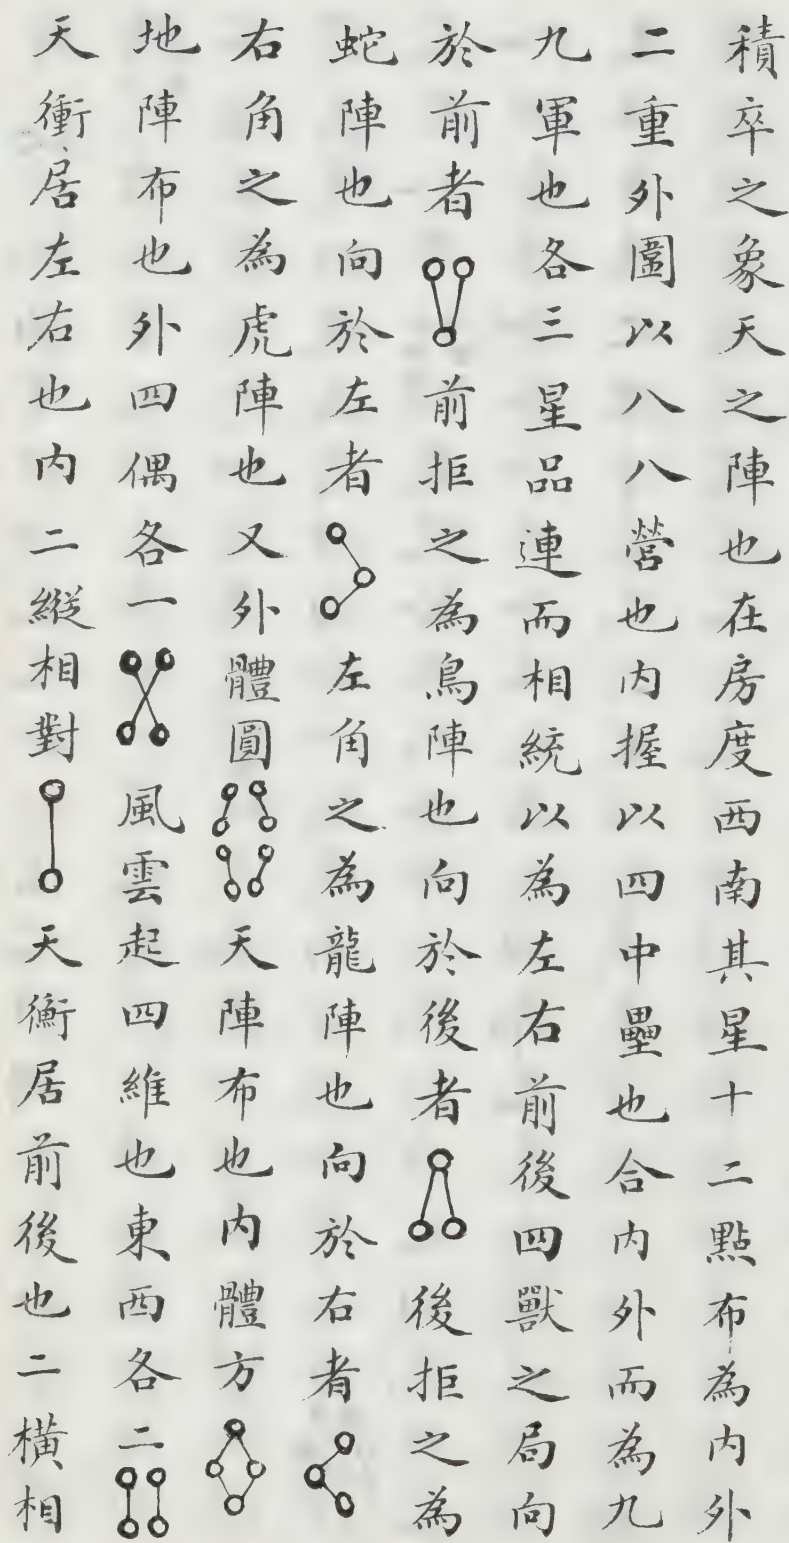 積卒之象天之陣也在房度西南其星十二點布為內外
二重外圍以八八營也內握以四中壘也合內外而為九
九軍也各三星品連而相統以為左右前後四獸之局向
於前者前拒之為鳥陣也向於後者後拒之為
蛇陣也向於左者左角之為龍陣也向於右者
右角之為虎陣也又外體圓天陣布也內體方
地陣布也外四偶各一風雲起四維也東西各二
天衝居左右也內二縱相對天衡居前後也二橫相